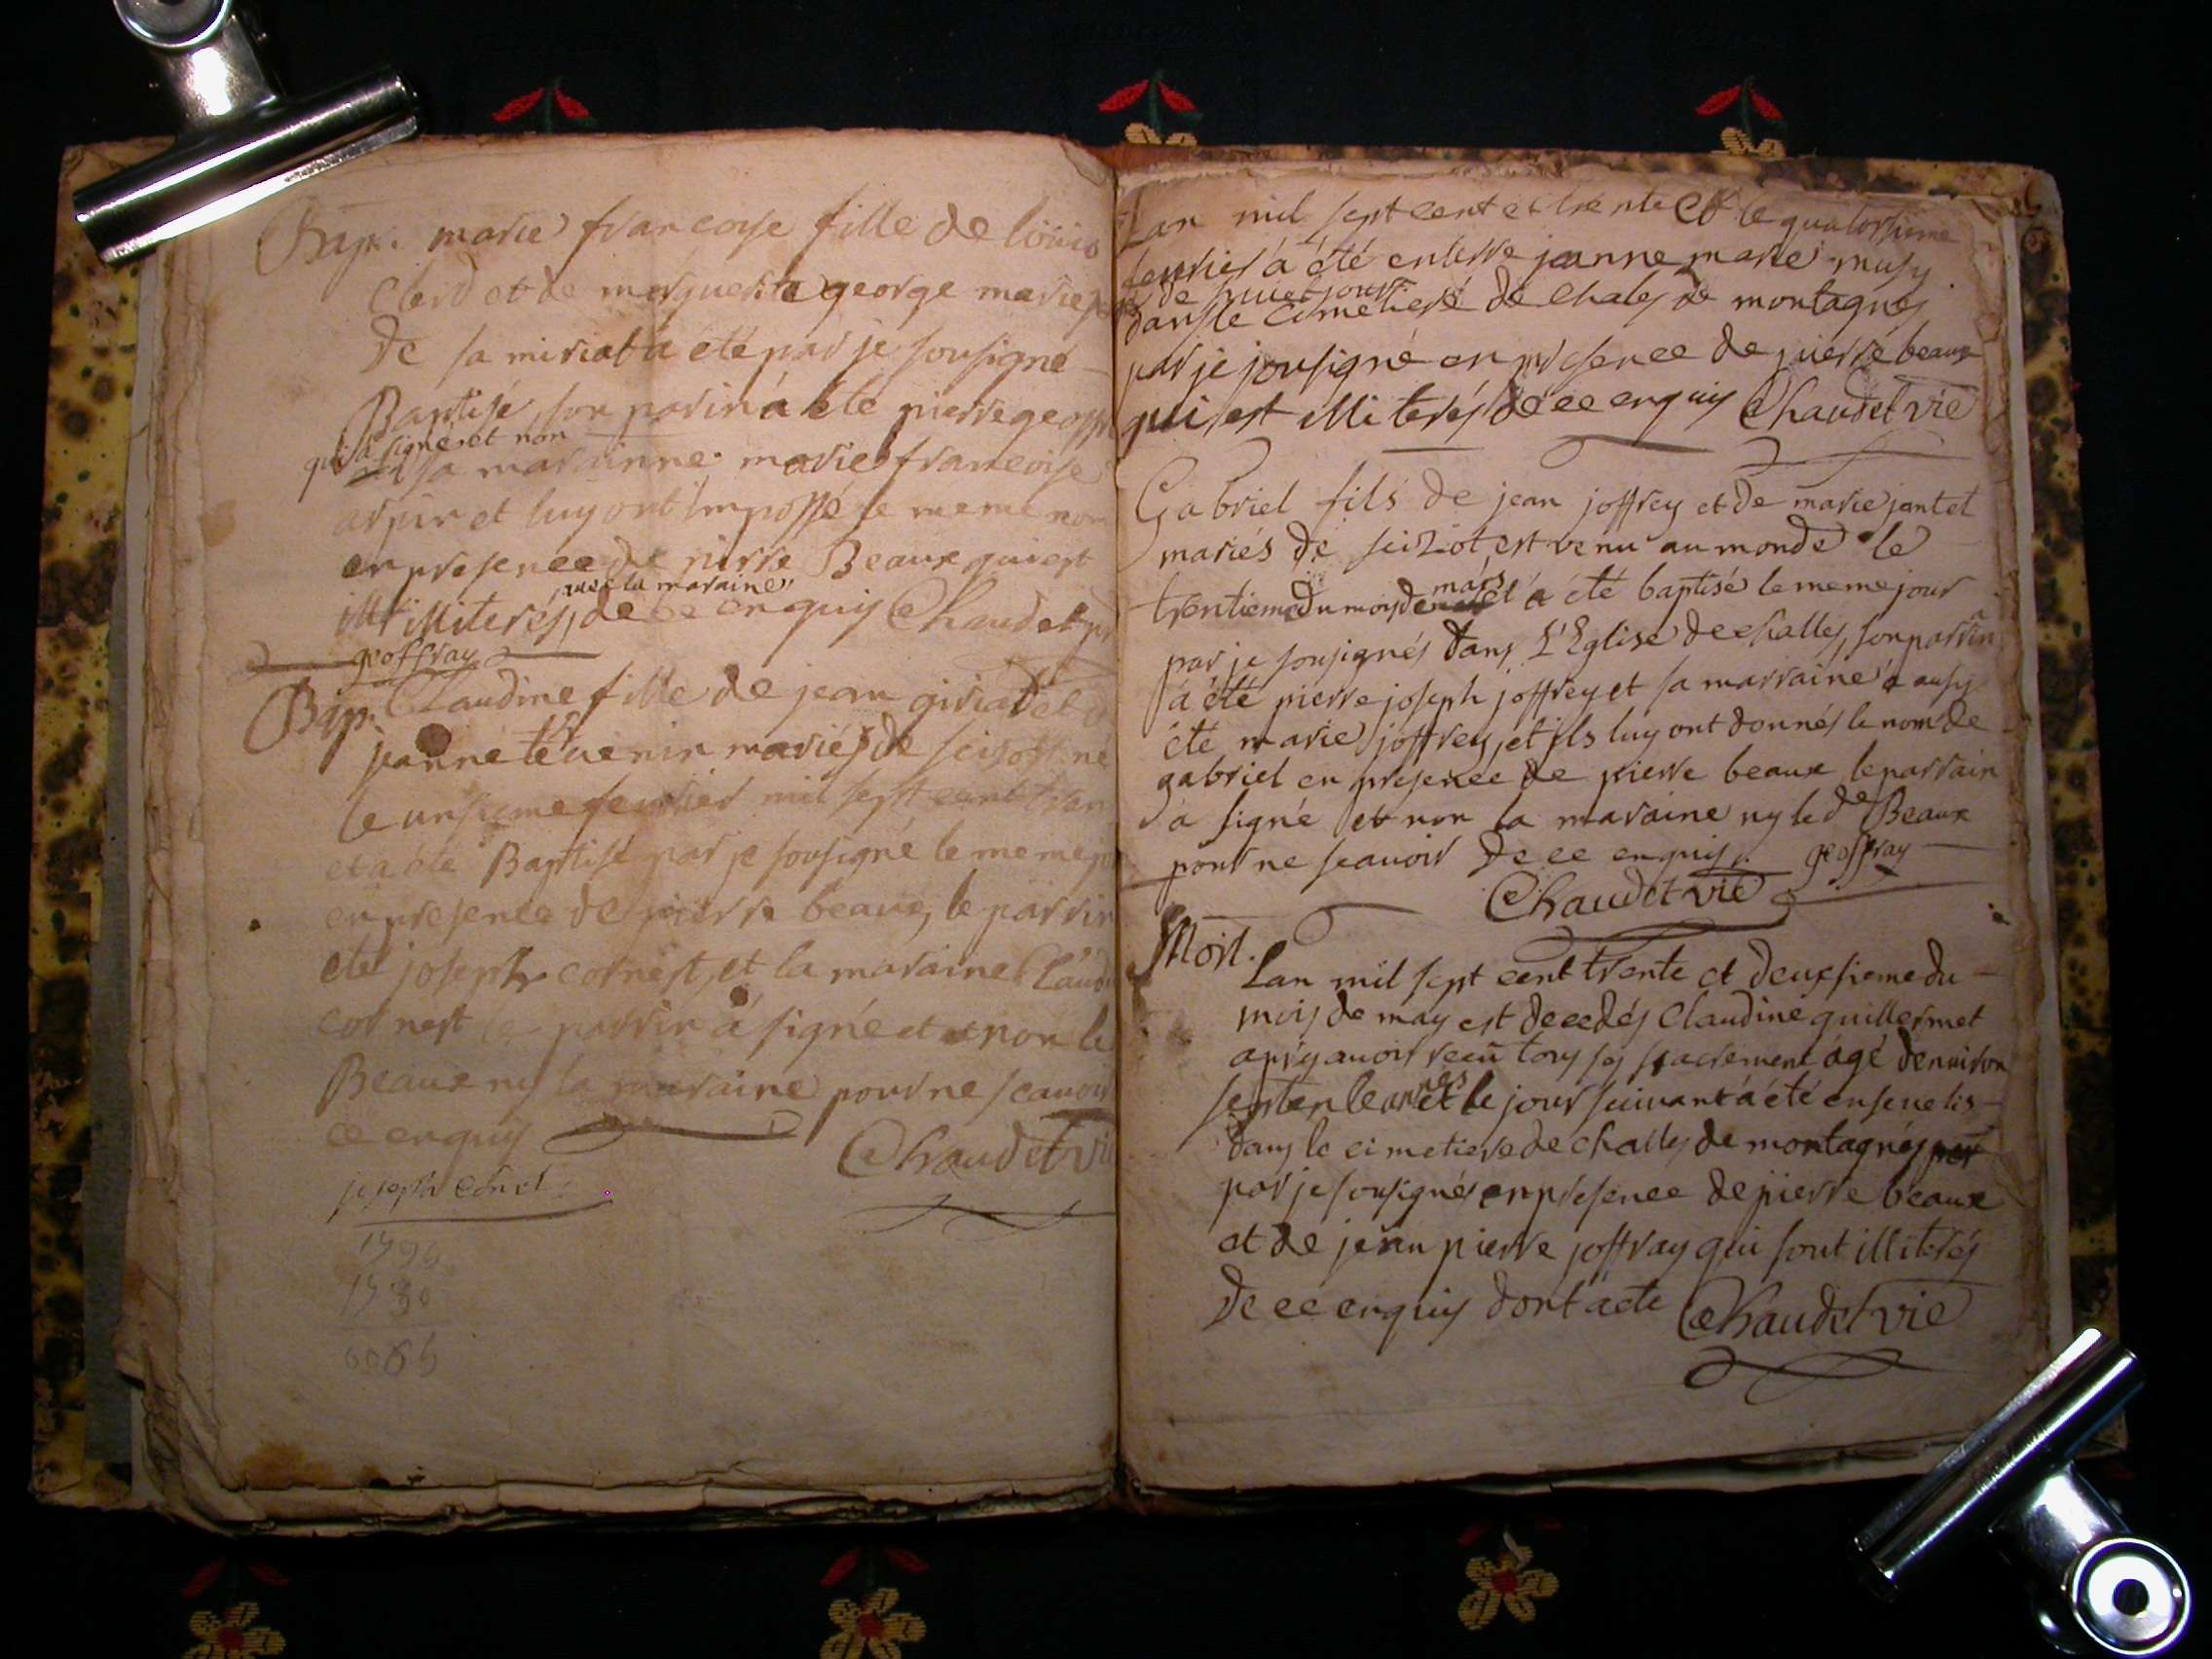 Bapt. marie francoyse fille de loüis
Clerd et de marguerite george mariés
de la miriat a été par je sousigné
Baptisé, son parin á été pierre geoffr
qui á signé et non
sa marainne marie francoise
arpin et luy ont impossé le meme nom
en presence de pierre Beaux qui est
avec la maraine
illiterés, de ce enquis Chaudet
geoffray
Bap. Claudine fille de jean giriat et
jeanne tevenin mariés de seizot né
le unsieme feuvrier mil sept cent tren
et a été Baptisé par je sousigné le meme
en presence de pierre beaux, le parrin
été joseph cornest, et la maraine Claud
cornest le parrin á signée et non le
Beaux ny la maraine pour ne scauoir
ce enquis Chaudet vi
joseph Cornet
1730
Lan mil sept cent et trente et le quatorsieme
feuvrier á été enterre jeanne marie musy
de huict jours
dans le cimetiere de Chales de montagnes
par je sousigné en presence de pierre beaux
qui est illiterés de ce enquis Chaudet vie
Gabriel fils de jean joffrey et de marie jantet
mariés de seiziot est venu au monde le
mars
trentieme du mois de et á été baptisé le meme jour
par je sousignés dans L'Eglise de challes, son parrin
á été pierre joseph joffrey et sa marraine a aussy
été marie joffrey, et ils luy ont donnés le nom de
gabriel en presence de pierre beaux le parrain
á signé et non la maraine ny le de Beaux
pour ne scauoir de ce enquis. geoffray
Chaudet vie
Mort.
Lan mil sept cent trente et deuxsieme du
mois de may est decedés Claudine guillermet
aprés auoir recu tous ses sacrement ágé denuiron
septente annés et le jour suiuant á été enseuelis
dans le cimetiere de challes de montagnes
par je sousignés en presence de pierre beaux
et de jean pierre joffray qui sont illiterés
de ce enquis dont acte Chaudet vie